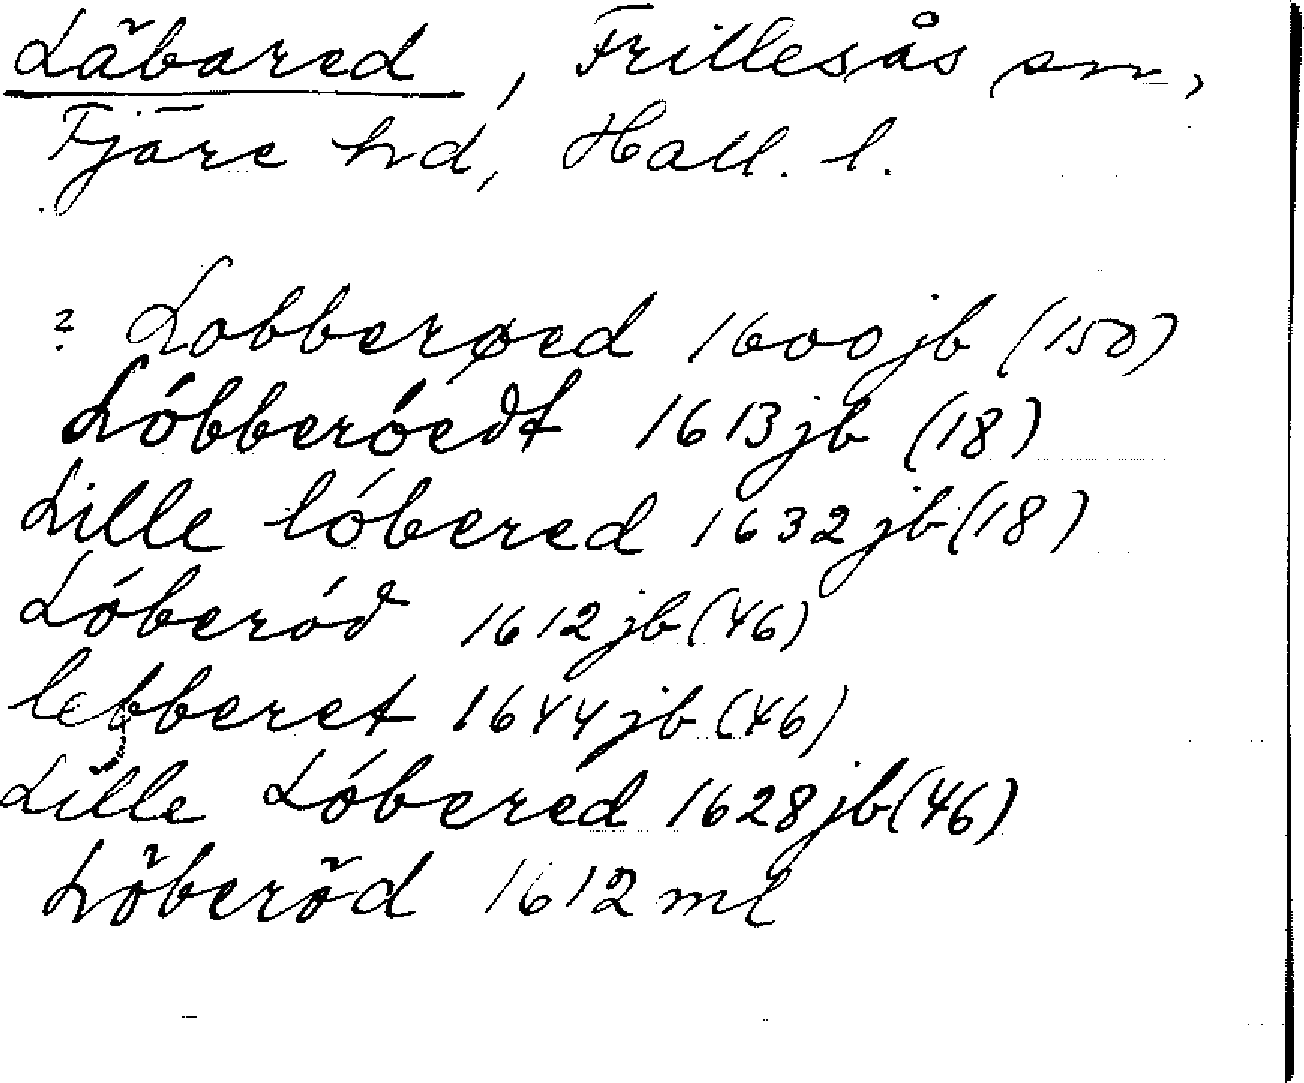 Läbared, Frillesås sn,
Fjäre hd, Hall. l.
? Lobberøed 1600 jb (150)
Lóbberóedt 1613 jb (18)
Lille lóbered 1632 jb (18)
Lóberód 1612 jb (46)
lebberet 1644 jb (46)
Lille Lóbered 1628 jb (46)
Lõberõd 1612 ml